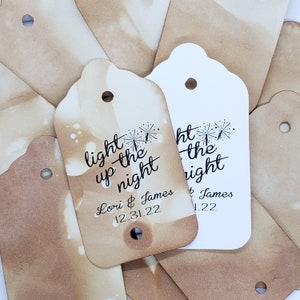 light
up the
night
Lori & James
12.31.22
ght
the
night
& James
.22